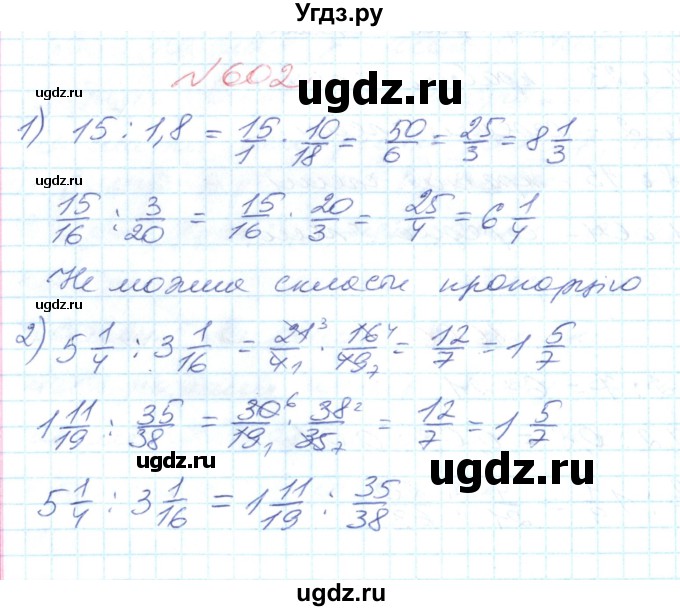 Угдз.ру
№602
ugdz.ru
ugdz.ru
ugdz.ru
1) 15 : 1,8 = 15/1 · 10/18 = 50/6 = 25/3 = 8 1/3
ugdz.ru
15/16 : 3/20 = 15/16 · 20/3 = 25/4 = 6 1/4
Не можна скласти пропорцію
ugdz.ru
2) 5 1/4 : 3 1/16 = 21 3/4 1 · 16 4/49 7 = 12/7 = 1 5/7
1 11/19 : 35/38 = 30 6/19 1 · 38 2/35 7 = 12/7 = 1 5/7
ugdz.ru
ugdz.ru
5 1/4 : 3 1/16 = 1 11/19 : 35/38
ugdz.ru
ugdz.ru